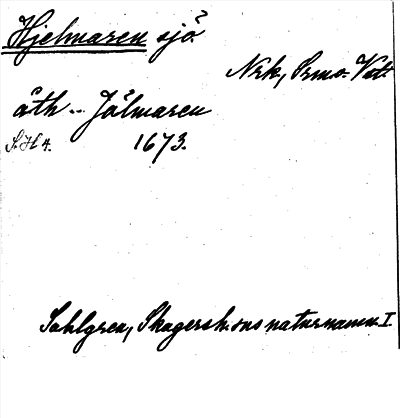 Hjelmaren sjö
Nrk, Srms. Vstl.
åth -- Jälmaren
S.H 4. 1673.
Sahlgren, Skagersh. sns naturnamn I